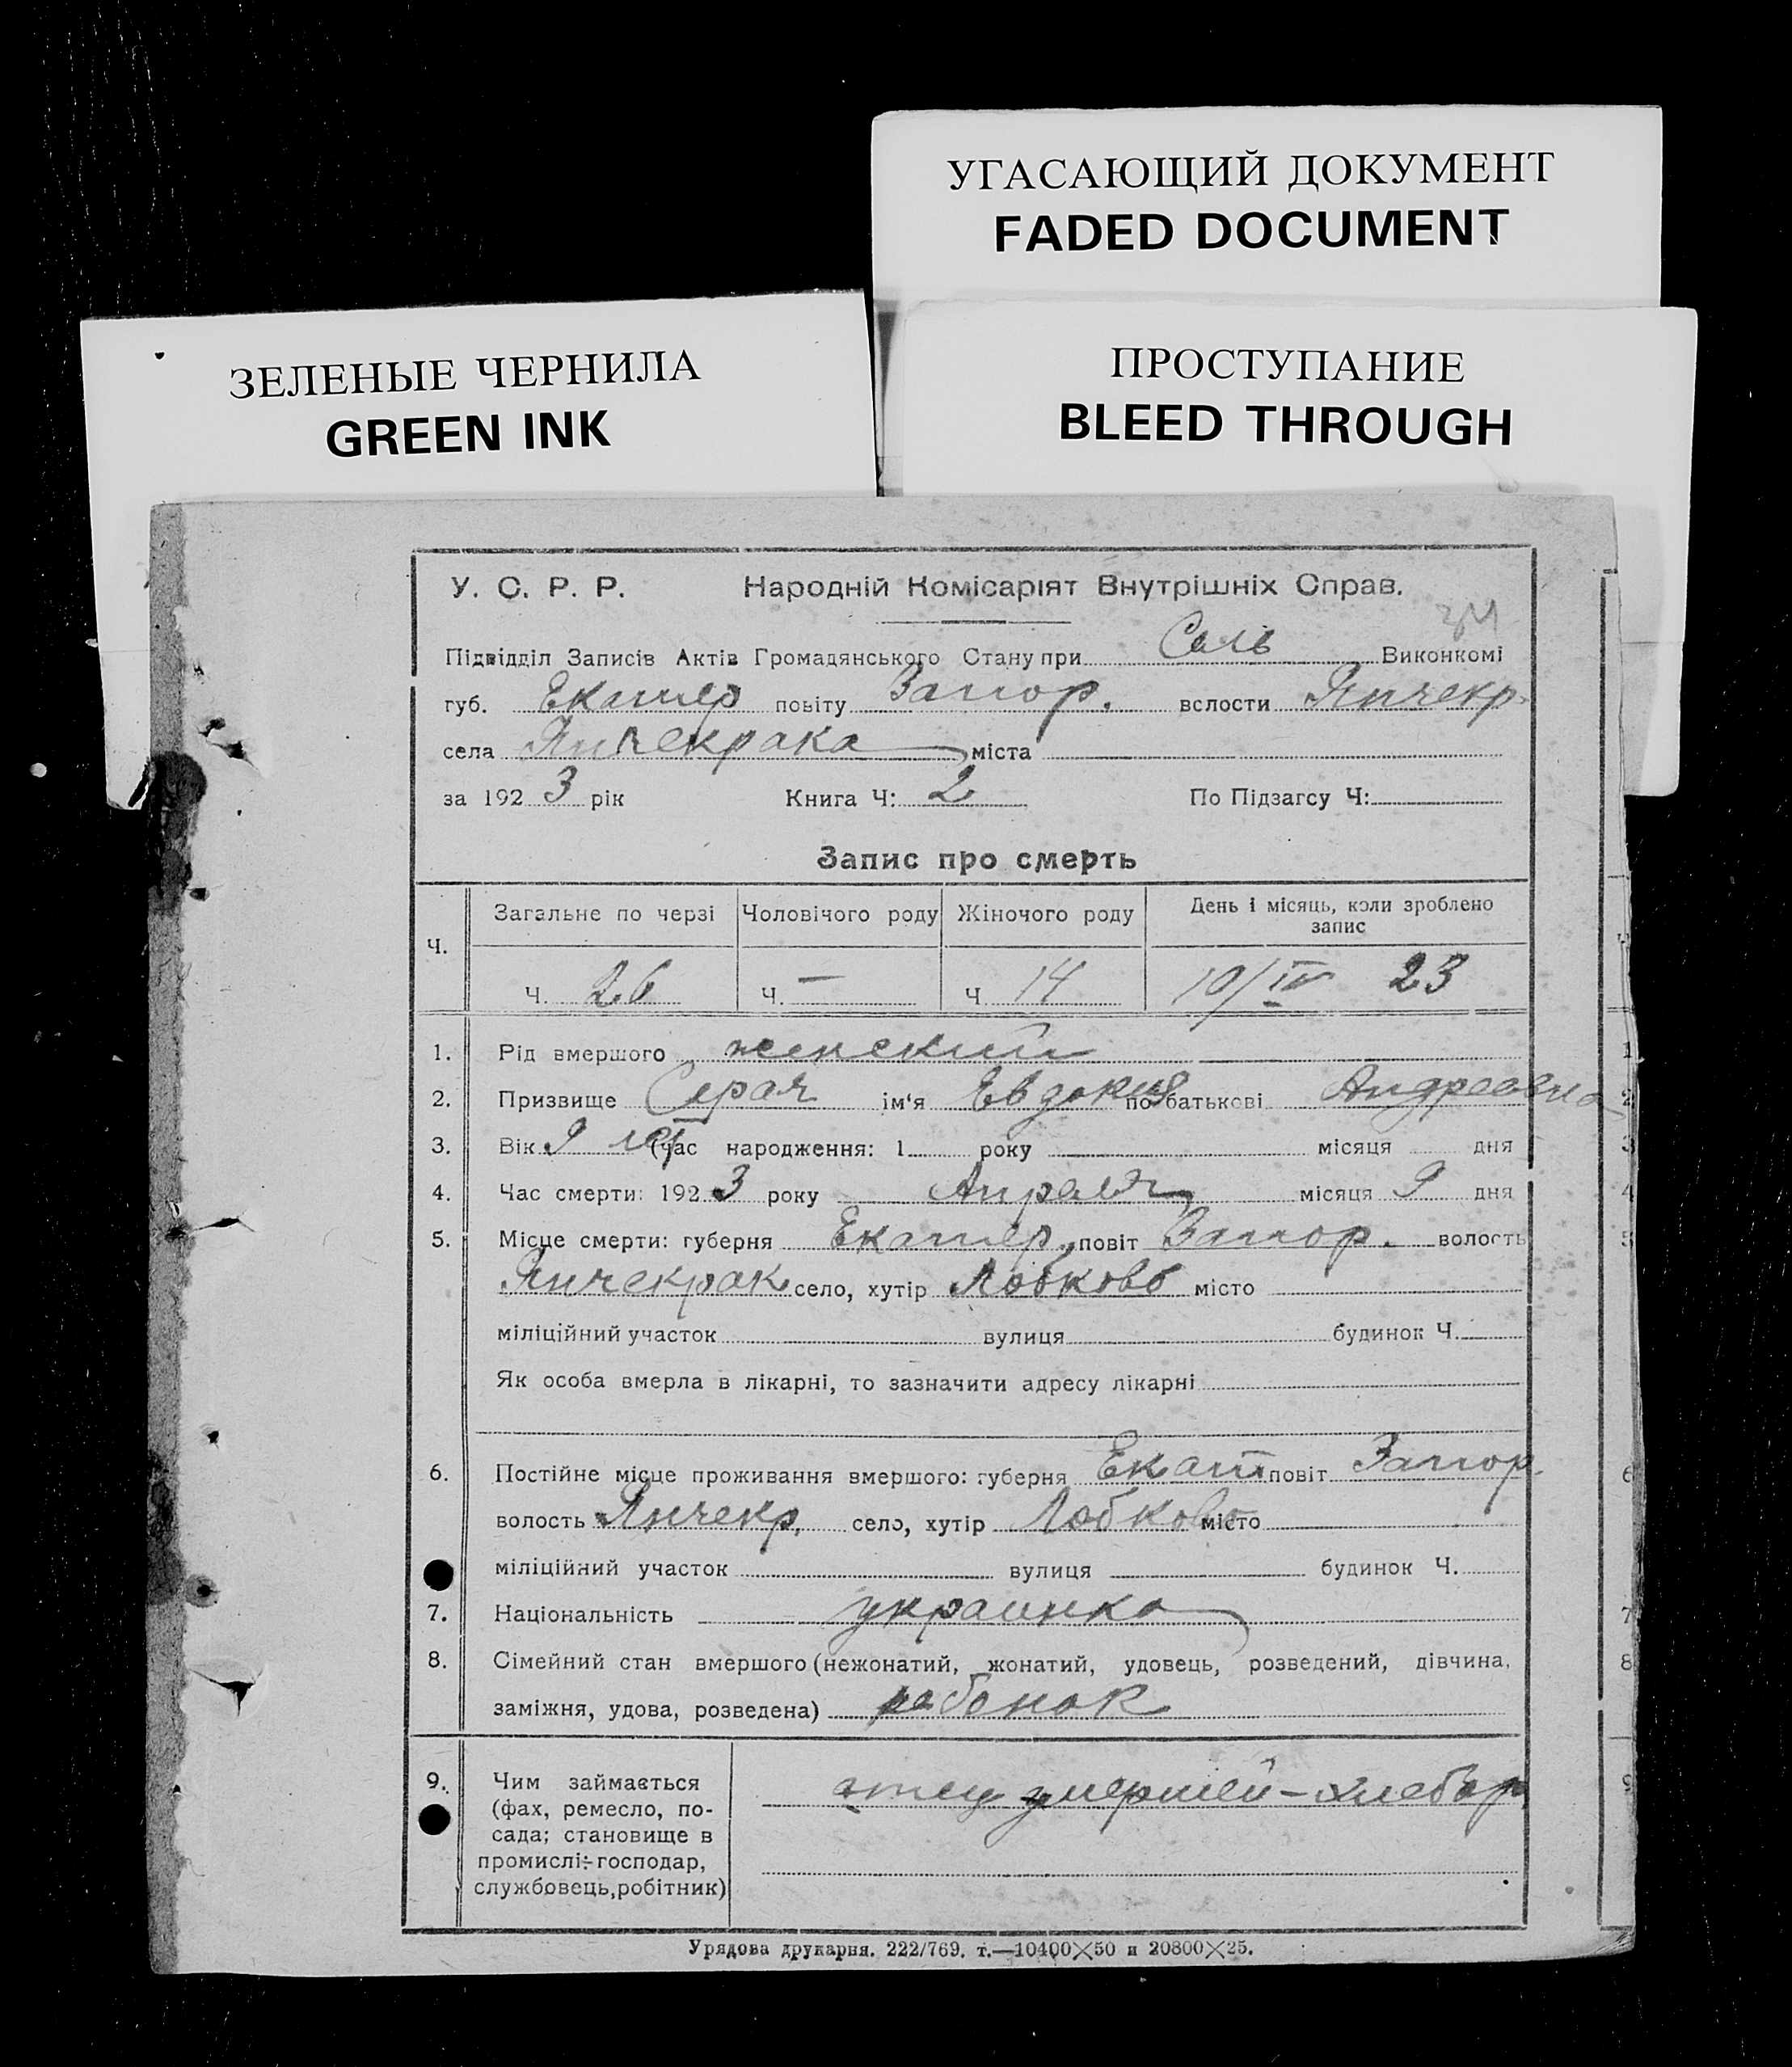 УГАСАЮЩИЙ ДОКУМЕНТ
FADED DOCUMENT
ЗЕЛЕНЫЕ ЧЕРНИЛА
GREEN INK
ПРОСТУПАНИЕ
BLEED THROUGH
У. С. Р. Р. Народній Комісаріят Внутрішніх Справ.
34
Підвідділ Записів Актів Громадянського Стану при Сель Виконкомі
губ. Екатер повіту Запор. вслости Янчекр.
села Янчекрака міста
за 192 3 рік Книга Ч: 2 По Підзагсу Ч:
Запис про смерть
Ч. Загальне по черзі Чоловічого роду Жіночого роду День і місяць, коли зроблено запис
Ч. 26 Ч. — Ч 14 10/IV 23
1. Рід вмершого женский
2. Призвище ім'я Евдокия по батькові Андреевна
3. Вік 9 лет (час народження: 1 року місяця дня
4. Час смерти: 192 3 року Апреля місяця 9 дня
5. Місце смерти: губерня Екатер. повіт Запор. волость
Янчекрак село, хутір Лобково місто
міліційний участок вулиця будинок Ч.
Як особа вмерла в лікарні, то зазначити адресу лікарні
6. Постійне місце проживання вмершого: губерня Екат повіт Запор.
волость Янчекр. село, хутір Лобково місто
міліційний участок вулиця будинок Ч.
7. Національність украинка
8. Сімейний стан вмершого (нежонатий, жонатий, удовець, розведений, дівчина,
заміжня, удова, розведена) ребенок
9. Чим займається отец умершей - хлебор
(фах, ремесло, по-
сада; становище в
промислі÷господар,
службовець,робітник)
Урядова друкарня. 222/769. т.—10400×50 и 20800×25.